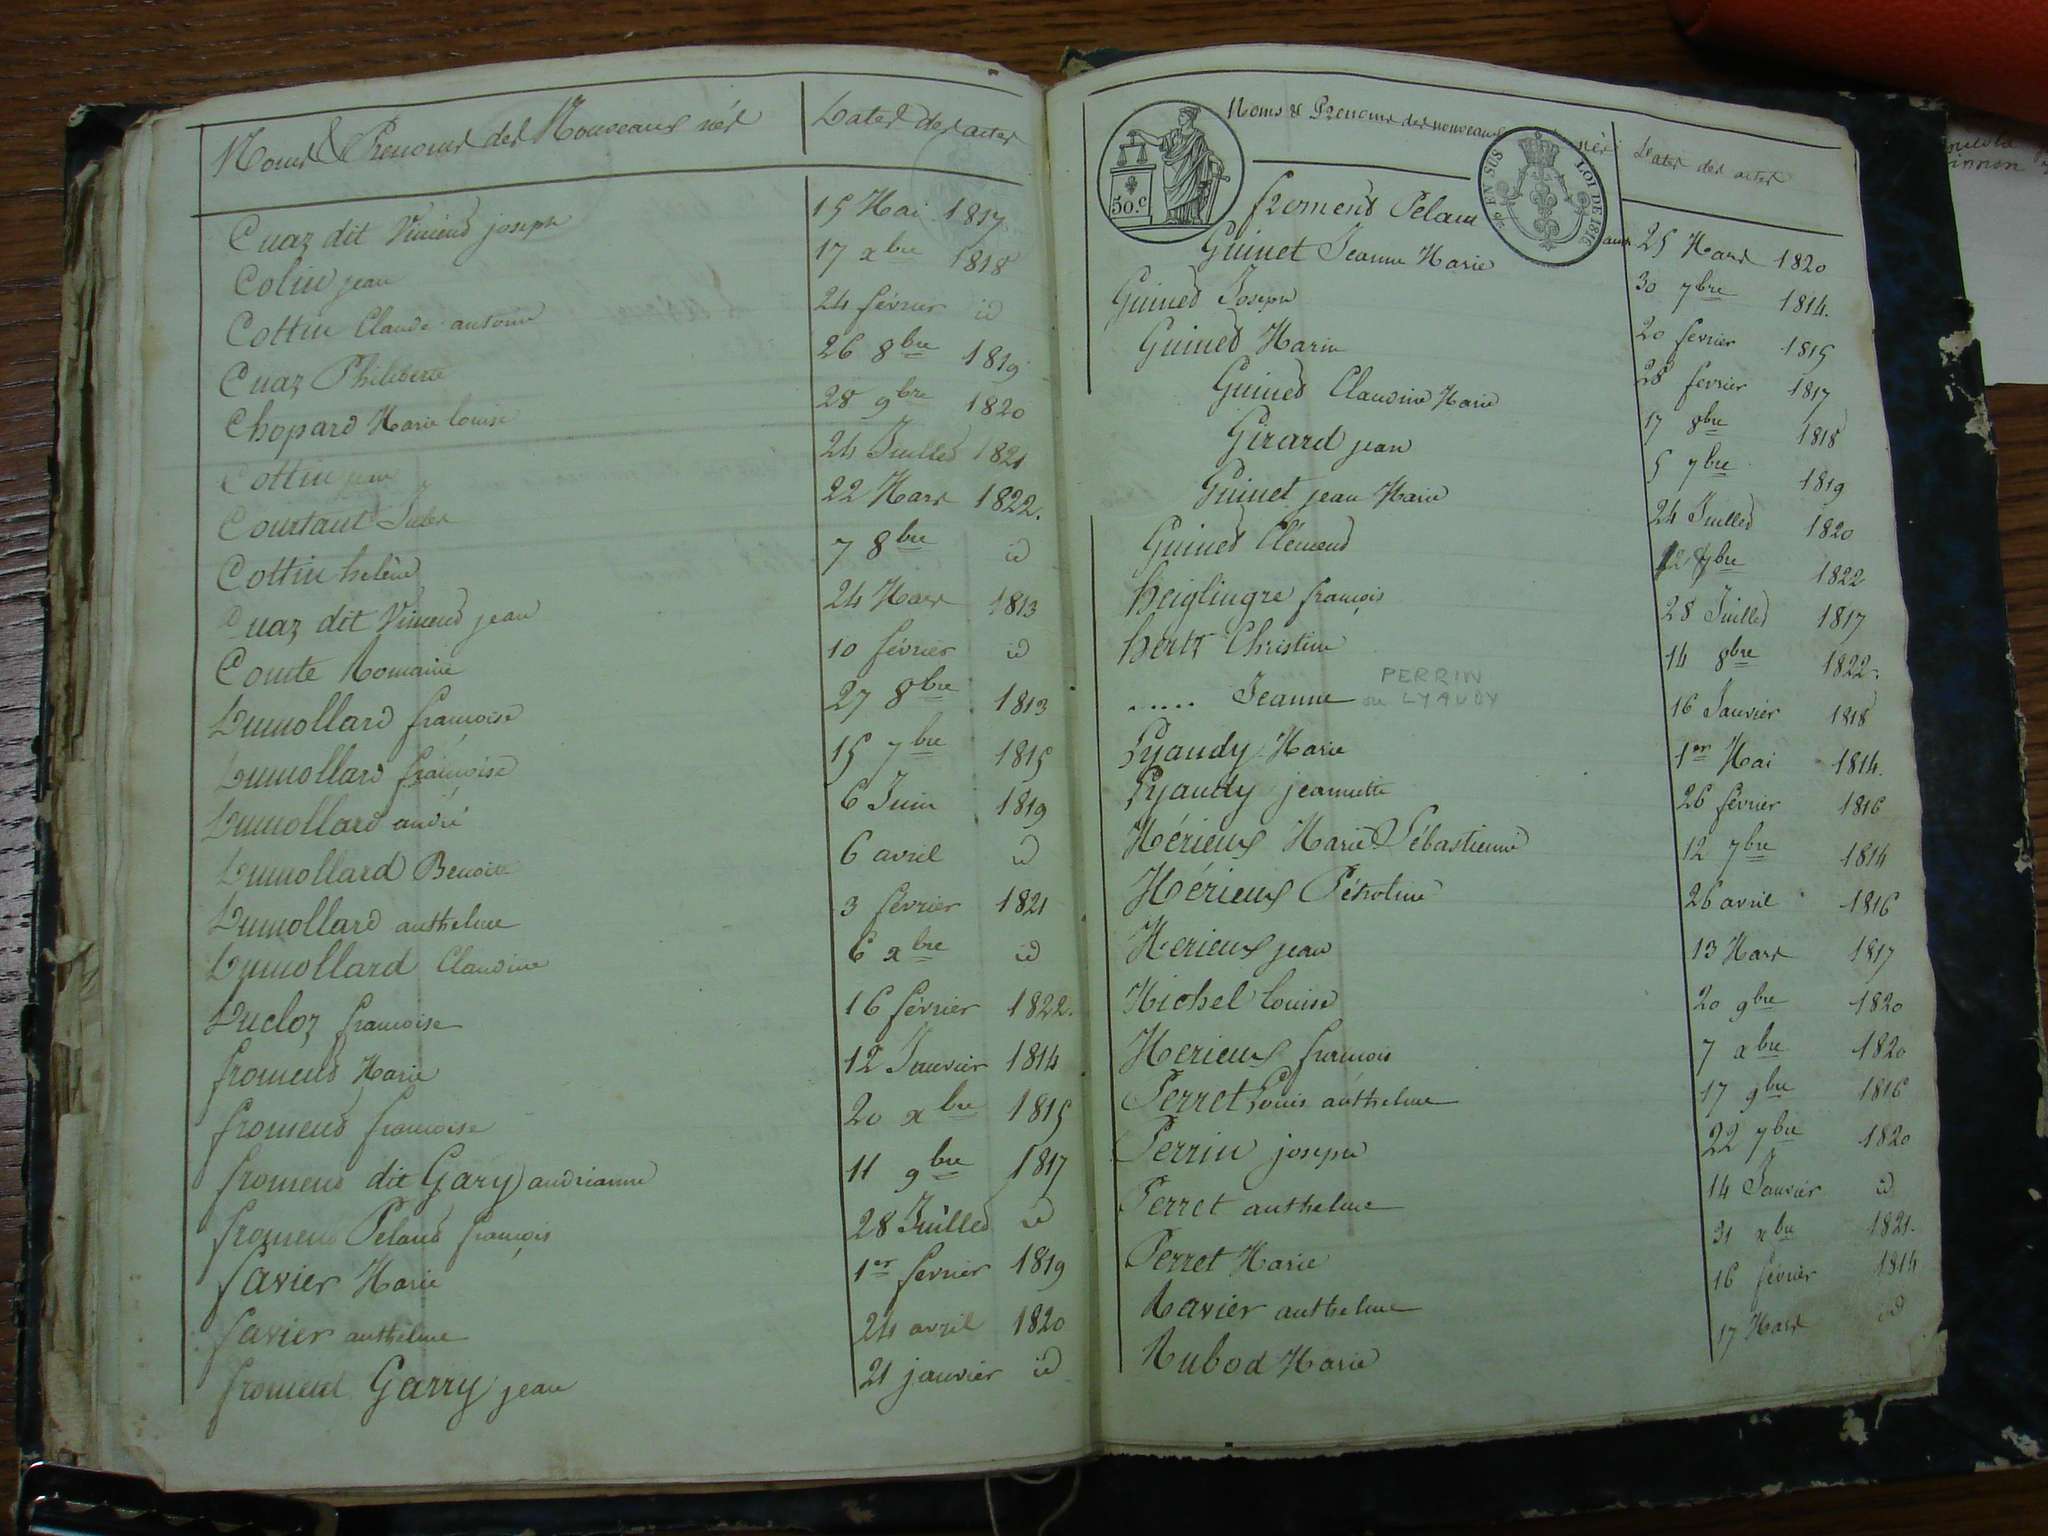 Noms & Prenoms des Nouveaux nés Dates des actes
Cuaz dit Vincend joseph 15 Mai 1817
Colin jean 17 xbre 1818
Cottin Claude antoine 24 février id
Cuaz Philiberte 26 8bre 1819
Chopard Marie louise 28 9bre 1820
Cottin jean 24 Juilled 1821
Courtaut Jules 22 Mars 1822.
Cottin helène 7 8bre id
Cuaz dit Vincend jean 24 Mars 1813
Comte Romaine 10 février id
Dumollard françoise 27 8bre 1813
Dumollard françoise 15 7bre 1815
Dumollard andré 6 Juin 1819
Dumollard Benoite 6 avril id
Dumollard anthelme 3 février 1821
Dumollard Claudine 6 xbre id
Ducloz francoise 16 février 1822.
fromend Marie 12 Janvier 1814
fromend francoise 20 xbre 1815
fromend dit Gary andrianne 11 9bre 1817
fromend Peland françois 28 Juilled id
favier Marie 1er fevrier 1819
favier anthelme 24 avril 1820
froment Garry jean 21 janvier id
Noms & Prenoms des nouveaux nés Dates des actes
50.c
EN SUS
LOI DE 1816
fromend Pelam 25 Mars 1820
Guinet Jeanne Marie 30 7bre 1814.
Guined Joseph 20 fevrier 1815
Guined Marie 28 fevrier 1817
Guined Claudine Marie 17 8bre 1818
Girard jean 5 7bre 1819
Guinet jean Marie 24 Juilled 1820
Guined Clémend 7bre 1822
heiglingre françois 28 Juilled 1817
hertz Christine 14 8bre 1822.
..... Jeanne PERRIN ou LYAUDY 16 Janvier 1818
Lyaudy Marie 1er Mai 1814.
Lyaudy jeannette 26 février 1816
Mérieux Marie Sébastienne 12 7bre 1814
Mérieux Pétroline 26 avril 1816
Merieux jean 13 Mars 1817
Michel louise 20 9bre 1820
Merieux francois 7 xbre 1820
Perret Louis anthelme 17 9bre 1816
Perrin joseph 22 7bre 1820
Perret anthelme 14 Janvier id
Perret Marie 31 xbre 1821.
Ravier anthelme 16 février 1814
Rubod Marie 17 Mars id